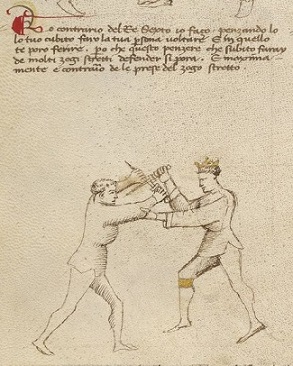 Lo contrario del Re Septo io faço. penzando lo
lo tuo cubito faro la tua psona voltare. E in quello
te poro ferire. po che questo penzere che subito faray
de molti zogi stretti defender si pora. E maxima-
mente e contrario de le prese del zogo stretto.